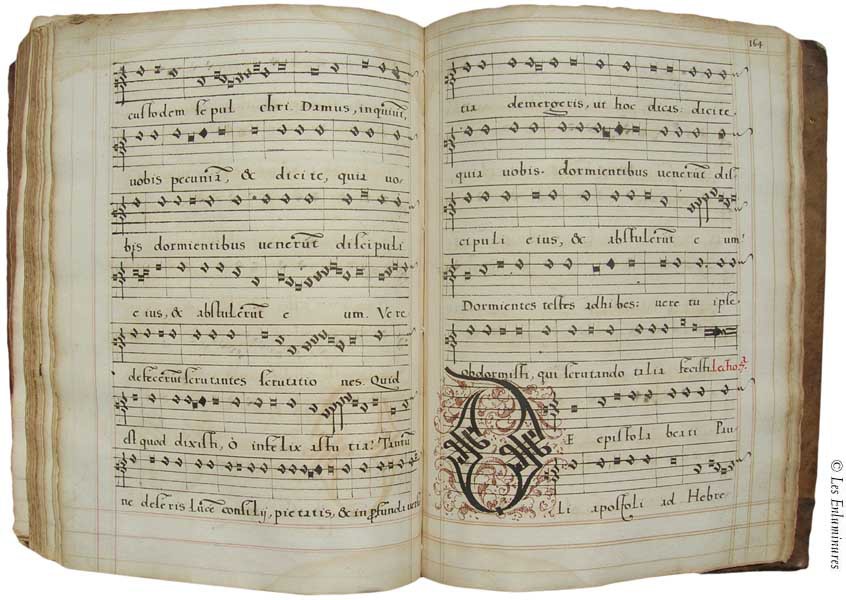 custodem sepul chri. Damus, inquiūt,
uobis pecuniā, & dicite, quia uo-
bis dormientibus venerūt discipuli
eius, & abstulerūt e um. Vere
defecerūt scrutantes scrutatio nes. Quid
est quod dixisti, ò infelix astu tia? Tantū
ne deseris lucē consilij, pietatis, & in profunda
164
tia demergeris, ut hoc dicas: dicite,
quia uobis dormientibus venerūt dis-
cipuli eius, & abstulerūt e um?
Dormientes testes adhibes: uere tu ipse
obdormisti, qui scrutando talia fecisti.
DE epistola beati Pau
li apostoli ad Hebre
© Les Enluminures